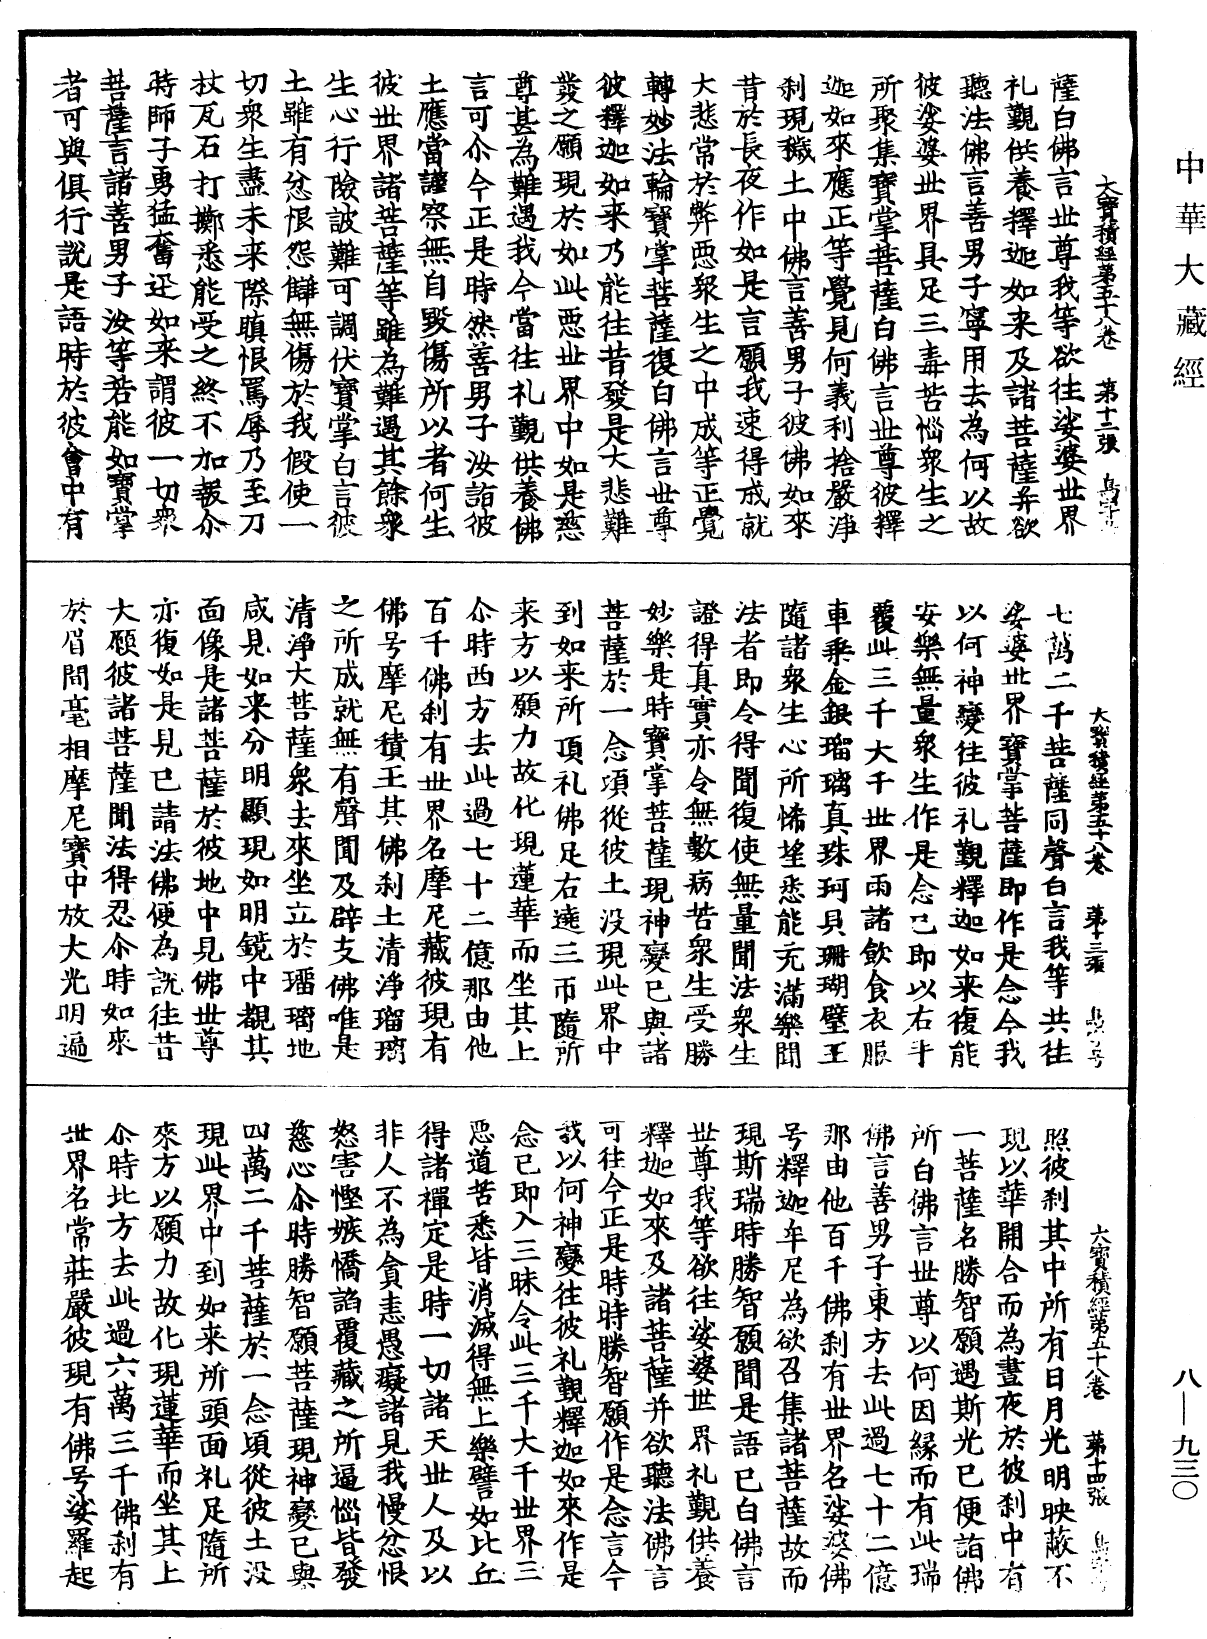 中華大藏經
大寶積經第五十八卷　第十二張　鳥字号
薩白佛言世尊我等欲往娑婆世界
礼覲供養釋迦如来及諸菩薩并欲
聽法佛言善男子寧用去為何以故
彼娑婆世界具足三毒苦惱衆生之
所聚集寶掌菩薩白佛言世尊彼釋
迦如來應正等覺見何義利捨嚴淨
刹現穢土中佛言善男子彼佛如來
昔於長夜作如是言願我速得成就
大悲常於弊惡衆生之中成等正覺
轉妙法輪寶掌菩薩復白佛言世尊
彼釋迦如来乃能往昔發是大悲難
發之願現於如此惡世界中如是慈
尊甚為難遇我今當往礼覲供養佛
言可尒今正是時然善男子汝詣彼
土應當謹察無自毀傷所以者何生
彼世界諸菩薩等雖為難遇其餘衆
生心行險詖難可調伏寶掌白言彼
土雖有忿恨怨讎無傷於我假使一
切衆生盡未来際瞋恨罵辱乃至刀
杖瓦石打擲悉能受之終不加報尒
時師子勇猛奮迅如来謂彼一切衆
菩薩言諸善男子汝等若能如寶掌
者可與俱行說是語時於彼會中有
大寶積經第五十八卷　第十三張　鳥字号
七萬二千菩薩同聲白言我等共往
娑婆世界寶掌菩薩即作是念今我
以何神變往彼礼覲釋迦如来復能
安樂無量衆生作是念已即以右手
覆此三千大千世界雨諸飲食衣服
車乘金銀瑠璃真珠珂貝珊瑚璧玉
隨諸衆生心所悕望悉能充滿樂聞
法者即令得聞復使無量聞法衆生
證得真實亦令無數病苦衆生受勝
妙樂是時寶掌菩薩現神變已與諸
菩薩於一念項從彼土没現此界中
到如来所頂礼佛足右遶三帀隨所
来方以願力故化現蓮華而坐其上
尒時西方去此過七十二億那由他
百千佛刹有世界名摩尼藏彼現有
佛号摩尼積王其佛刹土清淨瑠璃
之所成就無有聲聞及辟支佛唯是
清淨大菩薩衆去來坐立於瑠璃地
咸見如来分明顯現如明鏡中覩其
面像是諸菩薩於彼地中見佛世尊
亦復如是見已請法佛便為說往昔
大願彼諸菩薩聞法得忍尒時如來
於眉間毫相摩尼寶中放大光明遍
大寶積經第五十八卷　第十四張　鳥字号
照彼刹其中所有日月光明映蔽不
現以華開合而為晝夜於彼刹中有
一菩薩名勝智願遇斯光已便詣佛
所白佛言世尊以何因緣而有此瑞
佛言善男子東方去此過七十二億
那由他百千佛刹有世界名娑婆佛
号釋迦牟尼為欲召集諸菩薩故而
現斯瑞時勝智願聞是語已白佛言
世尊我等欲往娑婆世界礼覲供養
釋迦如來及諸菩薩并欲聽法佛言
可往今正是時時勝智願作是念言今
我以何神變往彼礼覲釋迦如来作是
念已即入三昧令此三千大千世界三
惡道苦悉皆消滅得無上樂譬如比丘
得諸禪定是時一切諸天世人及以
非人不為貪恚愚癡諸見我慢忿恨
怒害慳嫉憍諂覆藏之所逼惱皆發
慈心尒時勝智願菩薩現神變已與
四萬二千菩薩於一念頃從彼土没
現此界中到如来所頭面礼足隨所
來方以願力故化現蓮華而坐其上
尒時北方去此過六萬三千佛刹有
世界名常莊嚴彼現有佛号娑羅起
八—九三〇